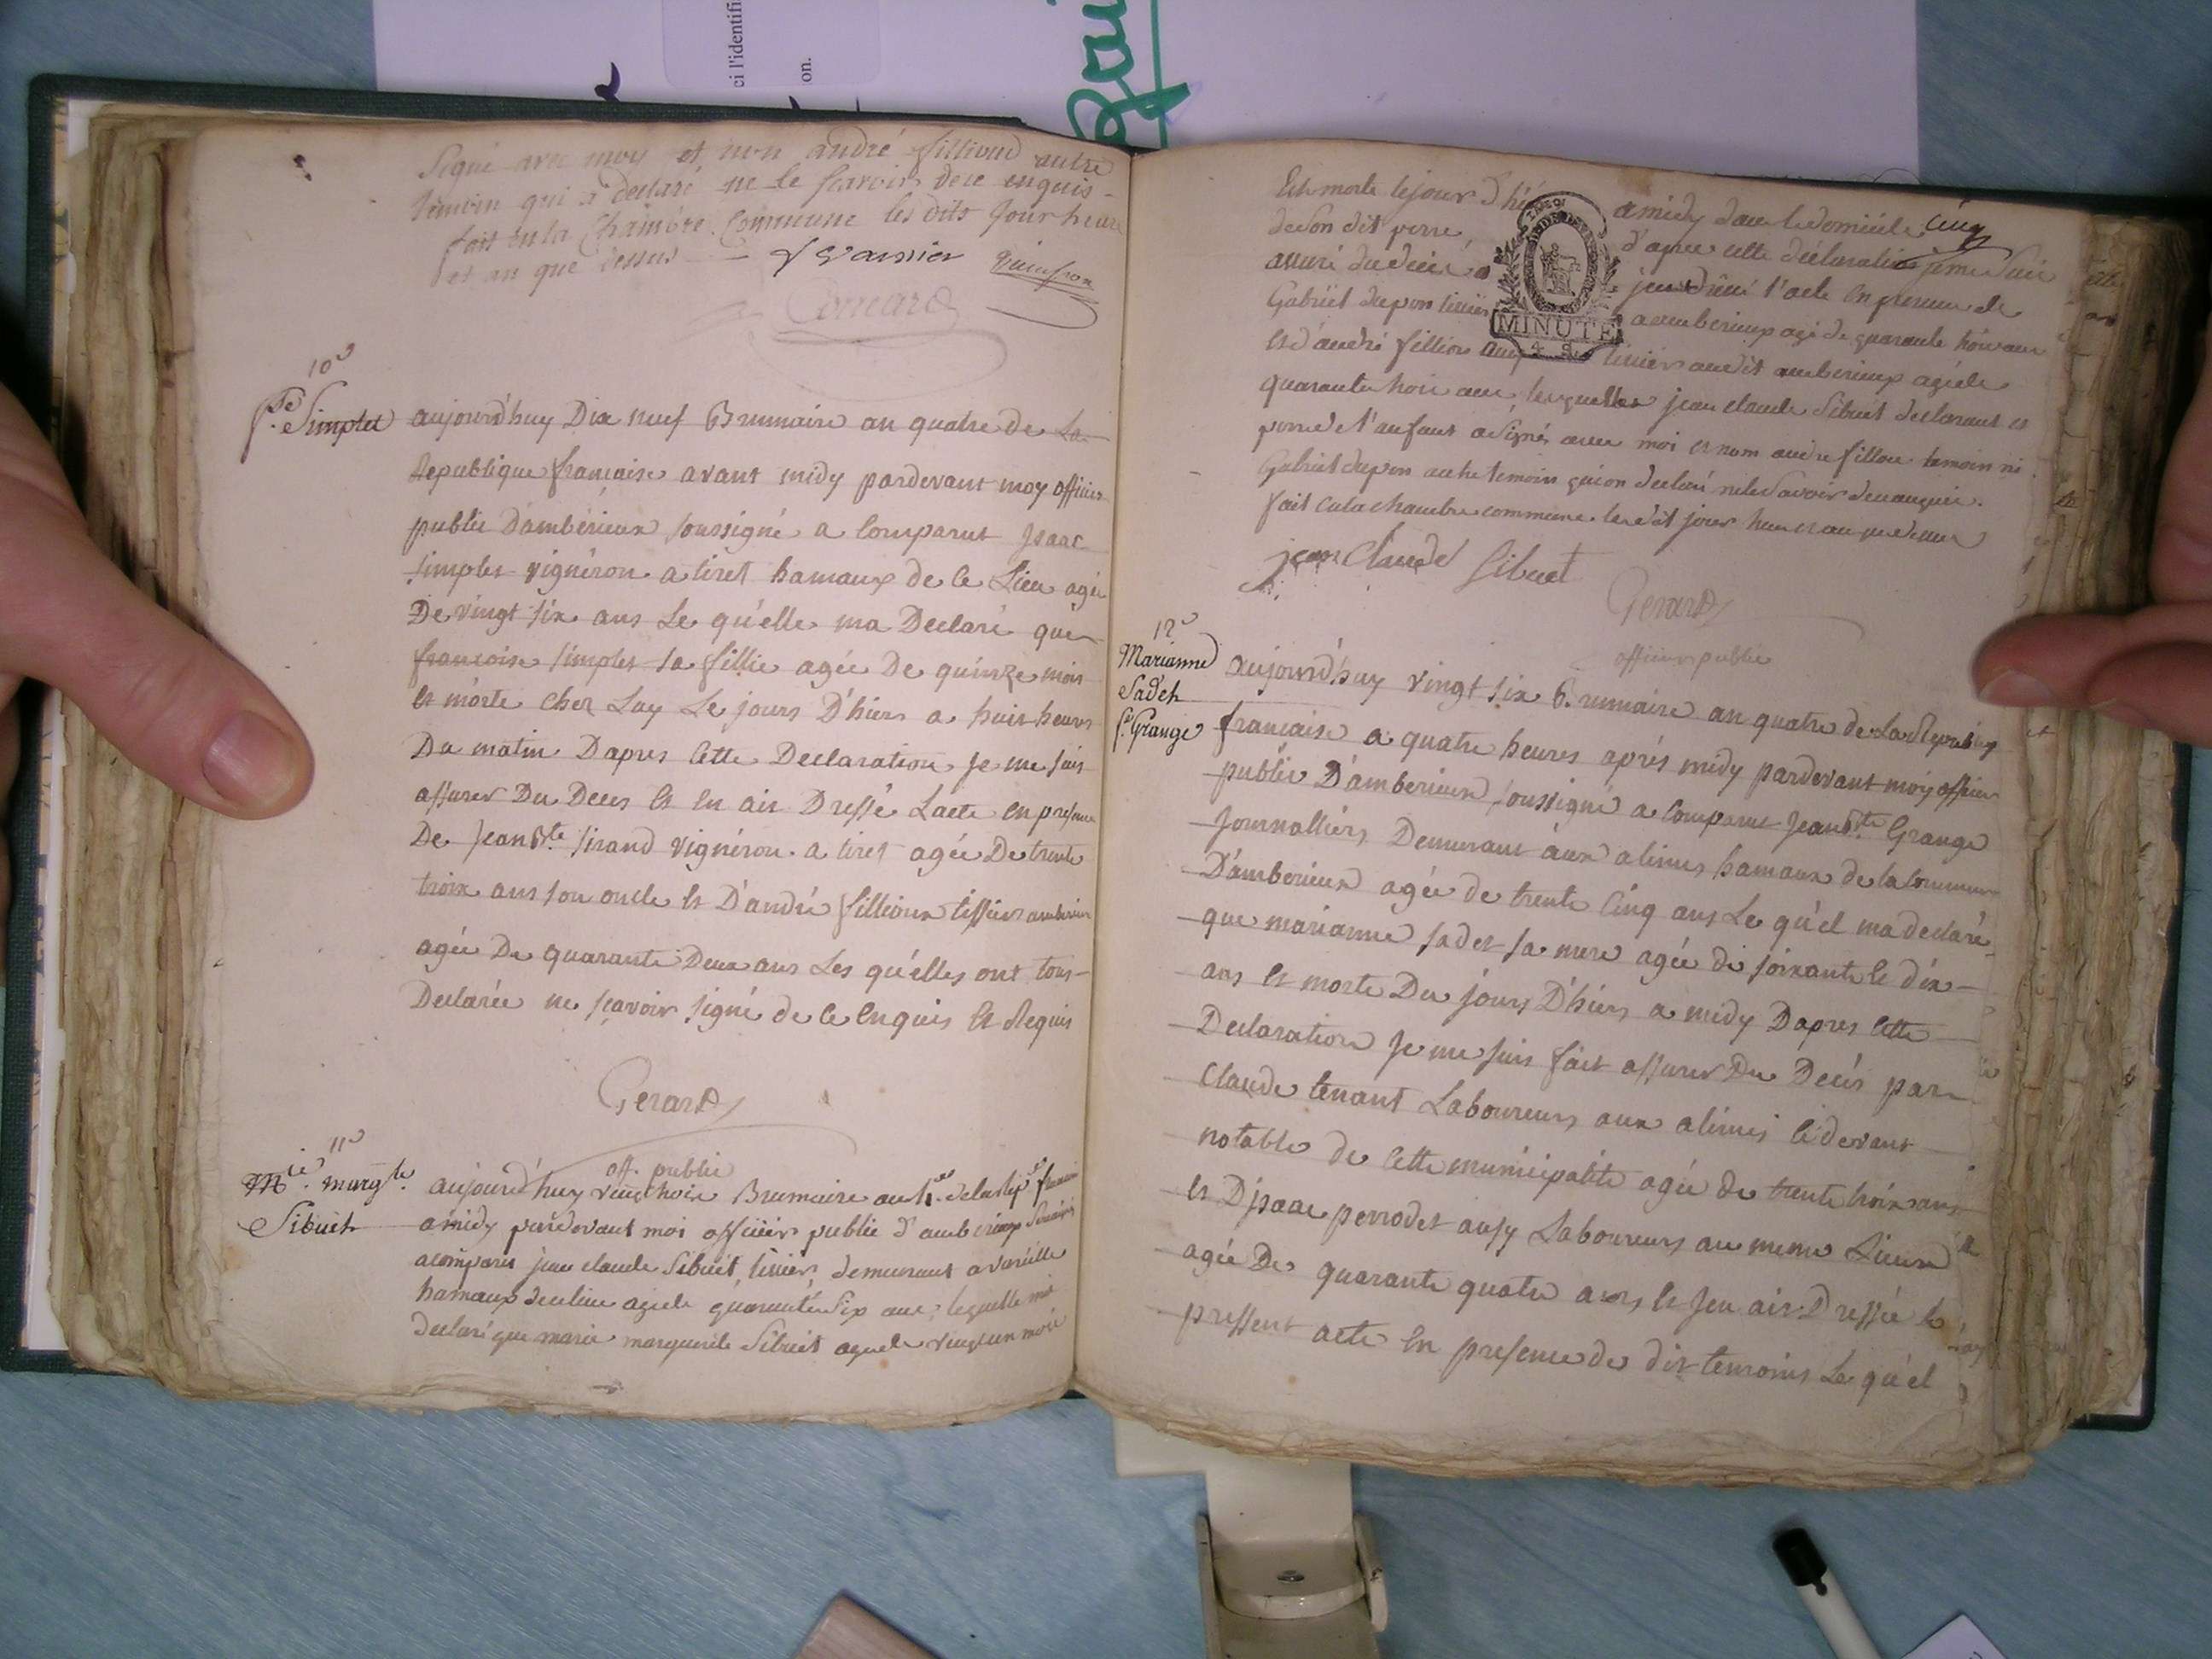 ci l'identifi
on.
Signé avec moy et non andré fillioud autre
témoin qui a declaré ne le scavoir dece enquis
fait en la Chambre Commune les dits Jour heure
et an que dessus
Gerard
10e
fse Simplet
aujourd'huy Dix neuf Brumaire an quatre de La
Republique francaise avant midy pardevant moy officier
public D'ambérieux soussigné a Comparut Isaac
simplet vignéron a tiret hamaux de ce Lieu agée
De vingt six ans Le qu'elle ma Declaré que
francoise simplet sa fillie agée De quinze mois
et morte chez Luy Le jours D'hiers a huit heures
Du matin Dapres Cette Declaration Je me suis
assurer Du Deces et en ais Dressé Lacte en presence
De Jean Bte sirand vignéron a tiret agée De trente
troix ans son oncle et D'andré fillioux tissier
agée De quarante Deux ans Les qu'elles ont tous
Declarée ne scavoir signé de ce Enquis Et Requis
Gerard
off. public
11e
Mie margte
Sibuet
aujourd'huy vingt trois Brumaire
a midy pardevant moi officier public d'amberieux
acomparu jean claude Sibuet, demeurant a vareille
hamaux de ce lieu agé de quarante six ans, lequelle
declaré que marie marguerite Sibuet agée de vingt un mois
Est morte le jour d'hi a midy dans le domicile cinq
de son dit perre d'apres cette déclaration je me suis
assuré du décé l'acte en presence de
Gabriel dupon amberieux agé de quarante trois ans
et d'andré fillion audit amberieux agé de
quarante trois ans, lesquelles jean claude Sibuet declarant et
perre de l'enfant a signé avec moi et nom andre fillion temoin ni
Gabriel dupon autre temoin qui on declaré ne le savoir
fait en la chambre commune le dit jour heure et an que dessus
MINUTE
4 s.
jean Claude Sibuet
Gerard
officier public
12e
Marianne
Sadet
fe Grange
aujourd'huy vingt six Brumaire an quatre de La Republiq
francaise a quatre heures aprés midy pardevant moy officier
public D'amberieux soussigné a comparut Jean Bte Grange
Journalliers Demeurant aux alimes hamaux de la Commune
D'amberieux agée de trente Cinq ans Le qu'el ma declaré
que marianne sadet sa mere agée de soixante et dix
ans et morte Du jours D'hiers a midy Dapres Cette
Declaration Je me suis fait assurer Du Decés par
Claude tenant Laboureurs aux alimes Cidevant
notable de Cette municipalité agée de trente troix ans
et D'isaac perrodet ausy Laboureurs au meme Lieux
agée De quarante quatre ans et Jen ais Dressée le
pressent acte En presence de dit temoins Le qu'el